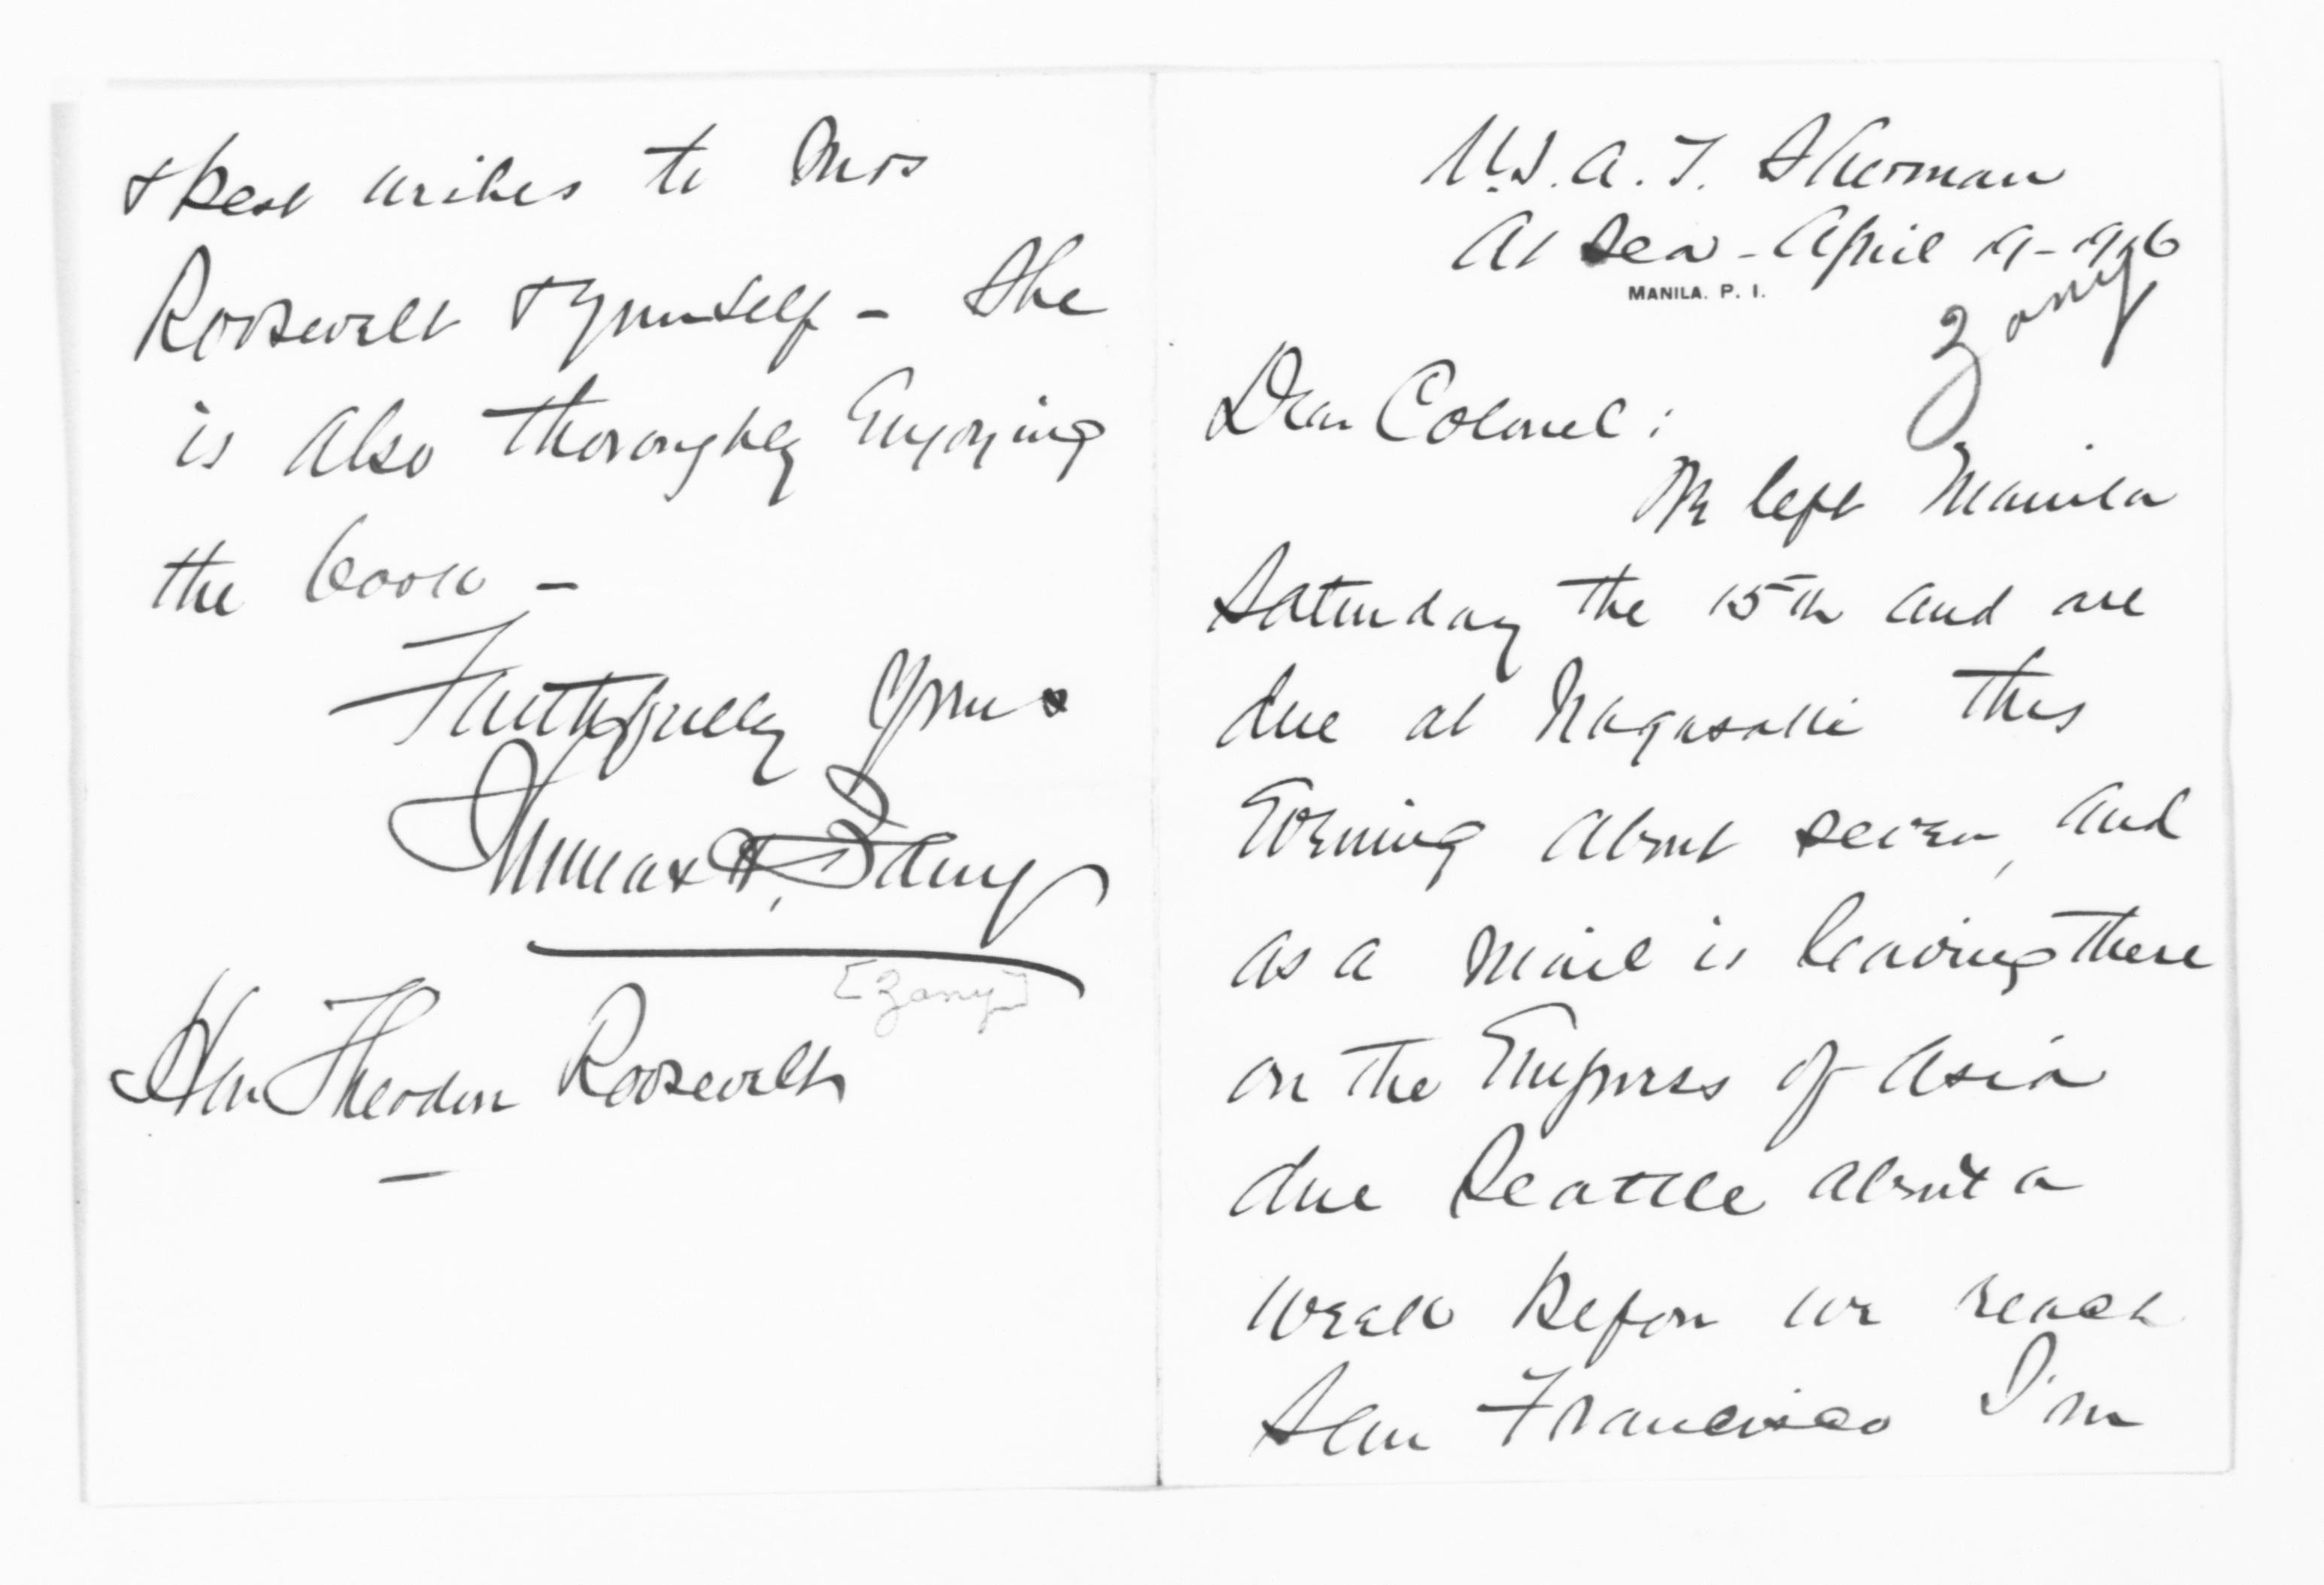 & best wishes to Mrs
Roosevelt & Yourself - She
is also thoroughly Enjoying
the book -
Faithfully Yours
Thomas H. Barry
[Zany]
Hon Theodore Roosevelt
U.S.A.T. Sherman
At Sea - April 19-1916
MANILA. P. I.
Zany
Dear Colonel:
We left Manila
Saturday the 15th and are
due at Nagasaki this
Evening about seven, and
as a mail is leaving there
on the Empress of Asia
due Seattle about a
week before we reach
San Francisco I'm